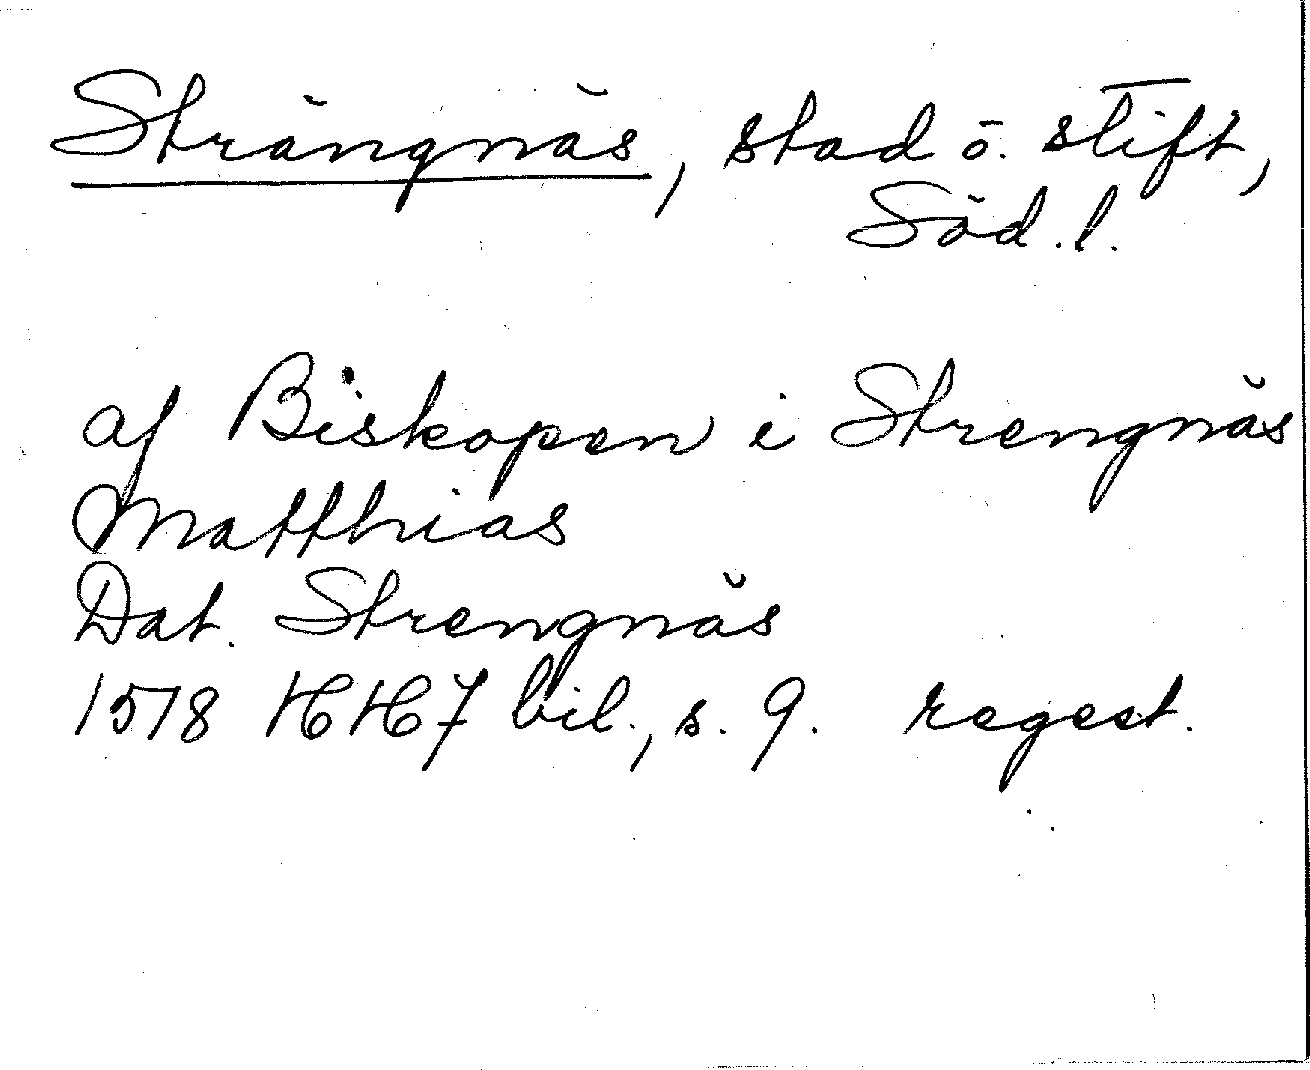 Strängnäs, stad ö. stift,
Söd.l.
af Biskopen i Strengnäs
Matthias
Dat. Strengnäs
1578 HH7 bil., s. 9. regest.